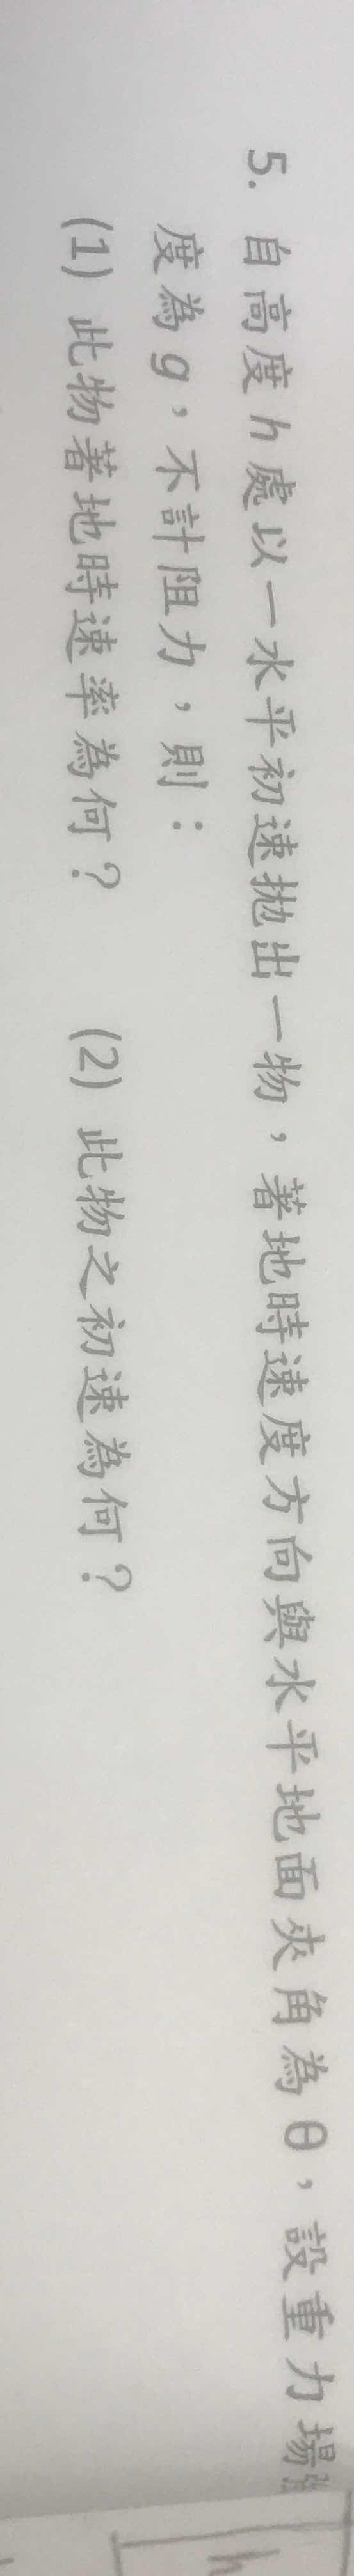 5. 自高度 h 處以一水平初速拋出一物，著地時速度方向與水平地面夾角為 θ，設重力場
度為 g，不計阻力，則：
(1) 此物著地時速率為何？ (2) 此物之初速為何？
h